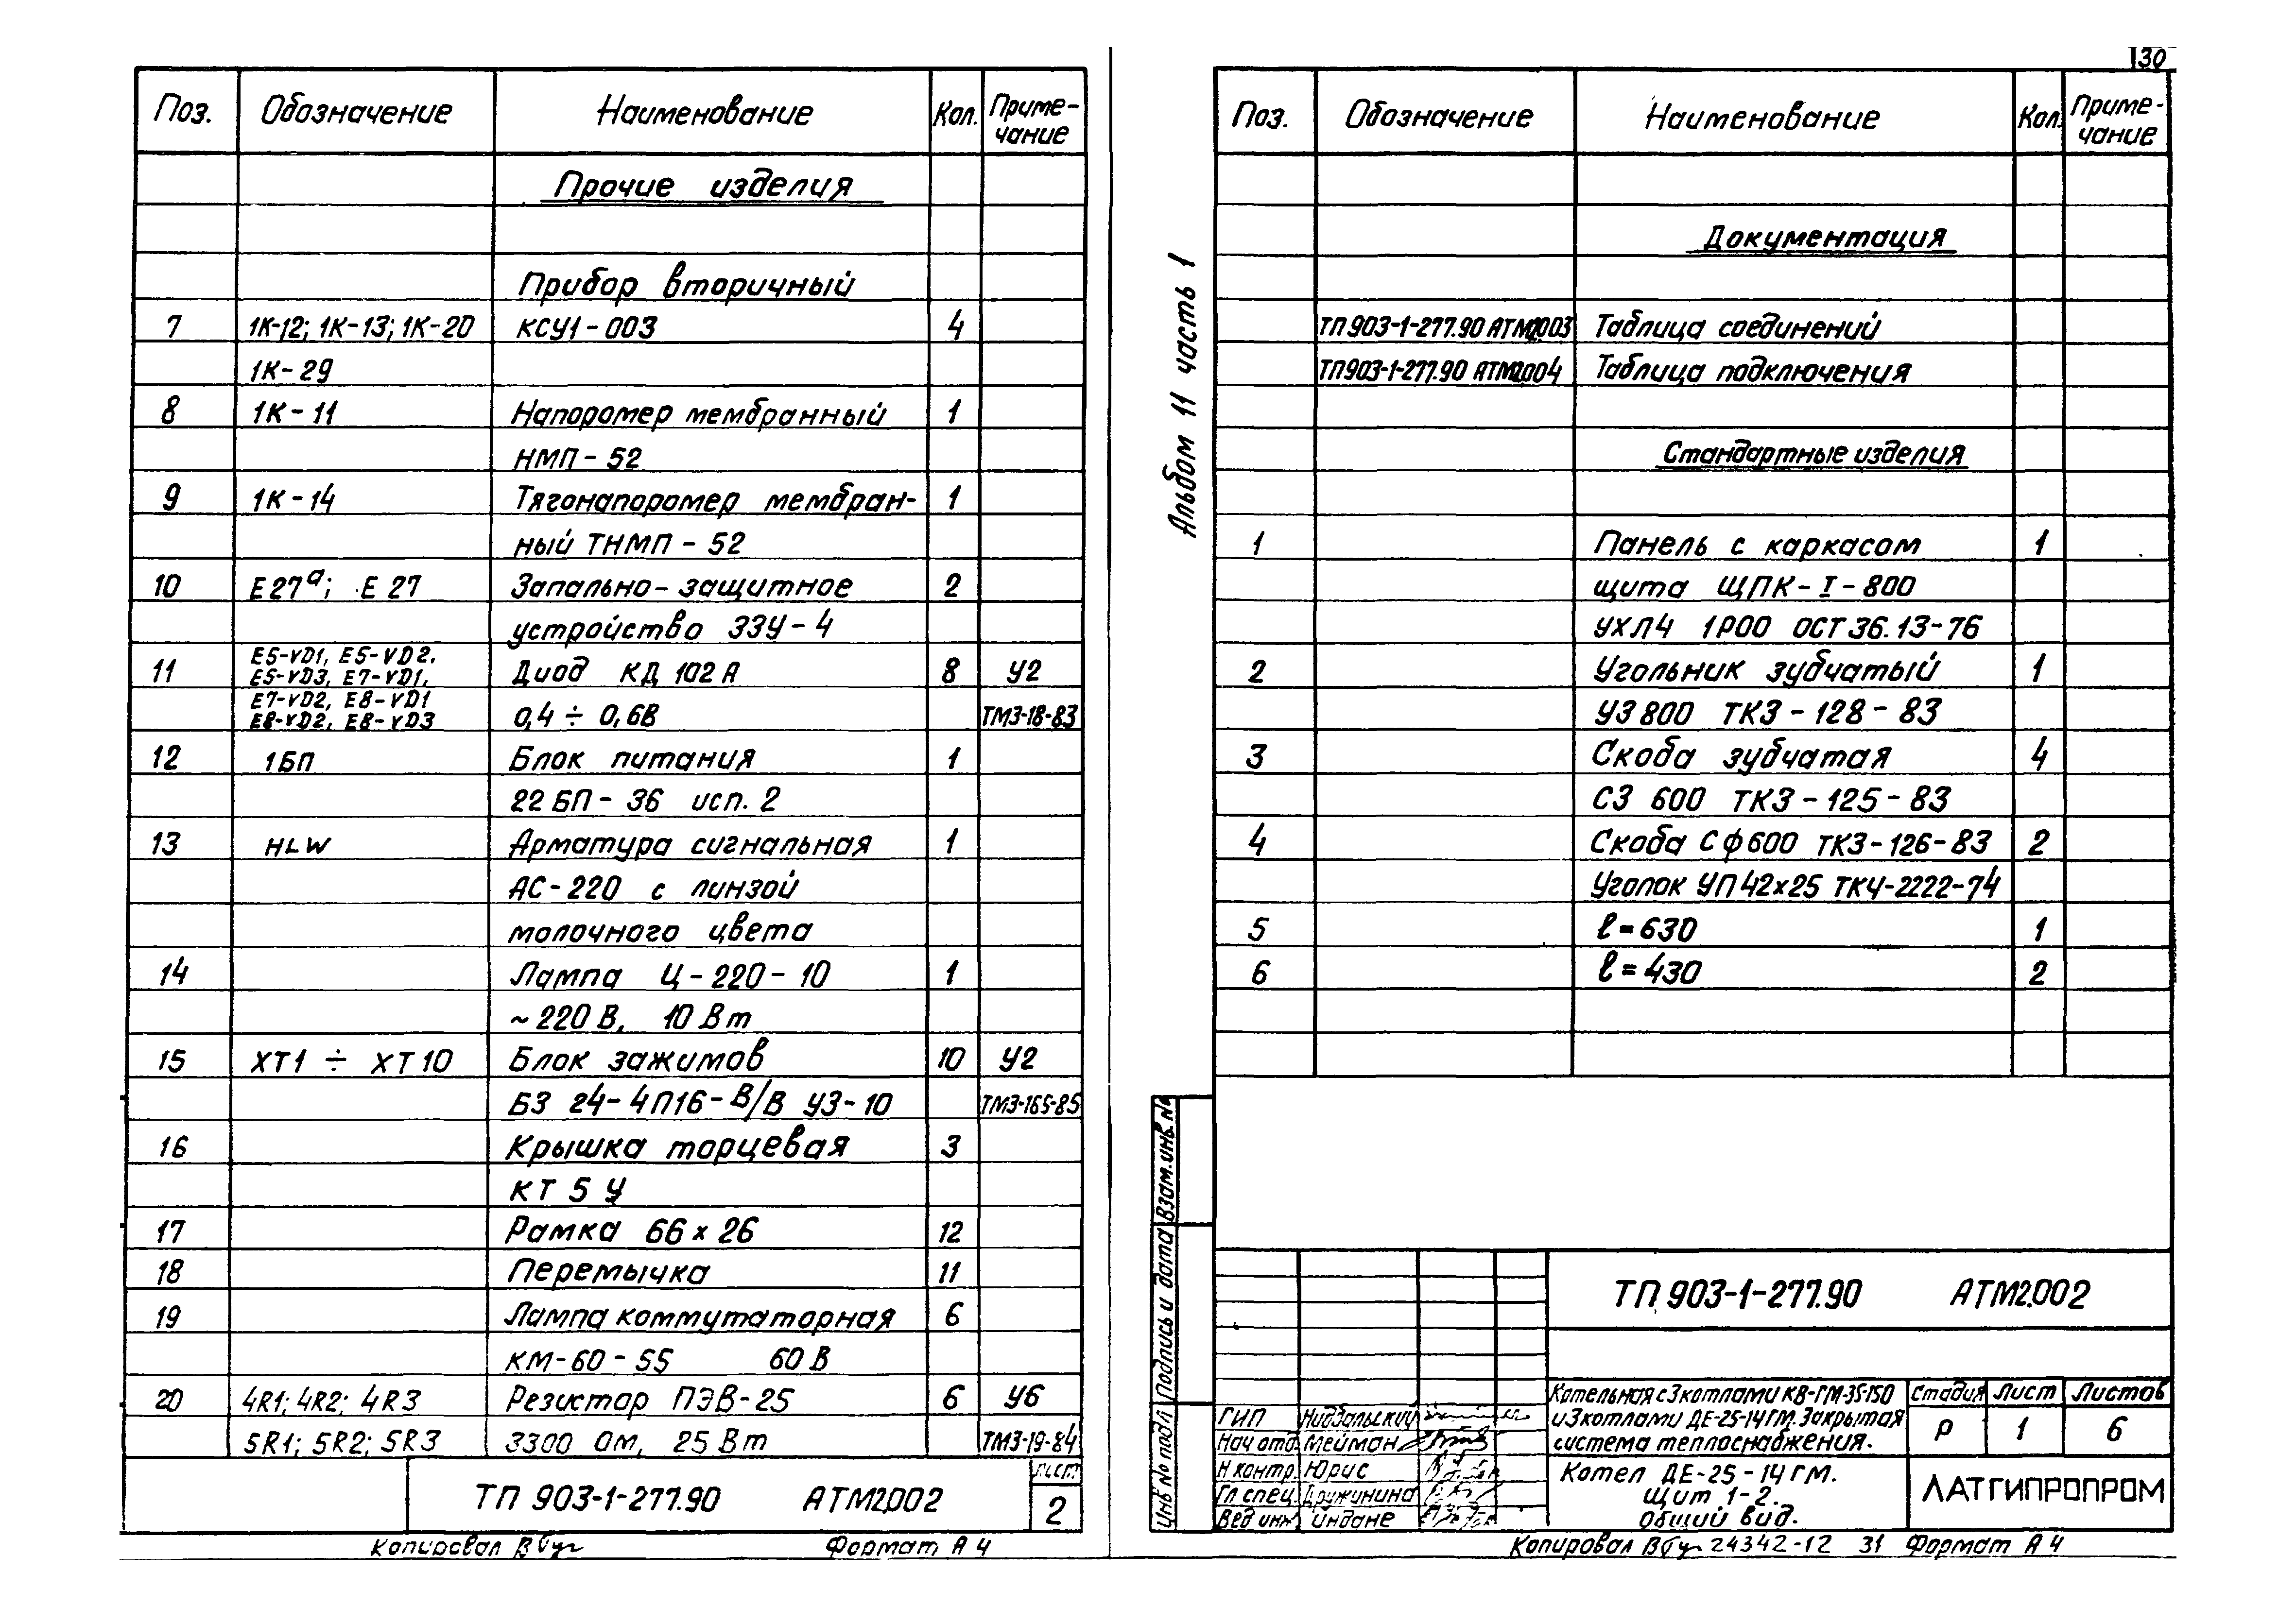 Поз. Обозначение Наименование Кол. Приме-
чание
Прочие изделия
Прибор вторичный
7 1К-12; 1К-13; 1К-20 КСУ1-003 4
1К-29
8 1К-11 Напоромер мембранный 1
НМП-52
9 1К-14 Тягонапоромер мембран- 1
ный ТНМП-52
10 Е27ª; Е27 Запально-защитное 2
устройство ЗЗУ-4
11 Е5-VD1, Е5-VD2, Е5-VD3, Е7-VD1, Диод КД 102А 8 У2
Е7-VD2, Е8-VD1 Е8-VD2, Е8-VD3 0,4÷0,6В ТМ3-18-83
12 1БП Блок питания 1
22БП-36 исп. 2
13 HLW Арматура сигнальная 1
АС-220 с линзой
молочного цвета
14 Лампа Ц-220-10 1
~220В, 10Вт
15 XT1 ÷ XT10 Блок зажимов 10 У2
БЗ 24-4П16-В/В У3-10 ТМ3-165-85
16 Крышка торцевая 3
КТ 5 У
17 Рамка 66×26 12
18 Перемычка 11
19 Лампа коммутаторная 6
КМ-60-55 60В
20 4R1; 4R2; 4R3 Резистор ПЭВ-25 6 У6
5R1; 5R2; 5R3 3300 Ом, 25Вт ТМ3-19-84
ТП 903-1-277.90 АТМ2.002
Лист
2
Копировал
Формат А4
130
Альбом 11 часть 1
Поз. Обозначение Наименование Кол. Приме-
чание
Документация
ТП903-1-277.90 АТМ2.003 Таблица соединений
ТП903-1-277.90 АТМ2.004 Таблица подключения
Стандартные изделия
1 Панель с каркасом 1
щита ЩПК-I-800
УХЛ4 1Р00 ОСТ 36.13-76
2 Угольник зубчатый 1
УЗ 800 ТК3-128-83
3 Скоба зубчатая 4
СЗ 600 ТК3-125-83
4 Скоба Сф600 ТК3-126-83 2
Уголок УП 42×25 ТК4-2222-74
5 ℓ=630 1
6 ℓ=430 2
Взам.инв.№
Подпись и дата
Инв № подл
ТП 903-1-277.90 АТМ2.002
Котельная с 3 котлами КВ-ГМ-35-150
и 3 котлами ДЕ-25-14ГМ. Закрытая
система теплоснабжения.
Стадия Лист Листов
Р 1 6
ГИП Нидзальский
Нач отд. Мейман
Н контр. Юрис
Гл спец. Дружинина
Вед инж Йндане
Котел ДЕ-25-14ГМ.
Щит 1-2.
Общий вид.
ЛАТГИПРОПРОМ
Копировал
24342-12 31 Формат А4